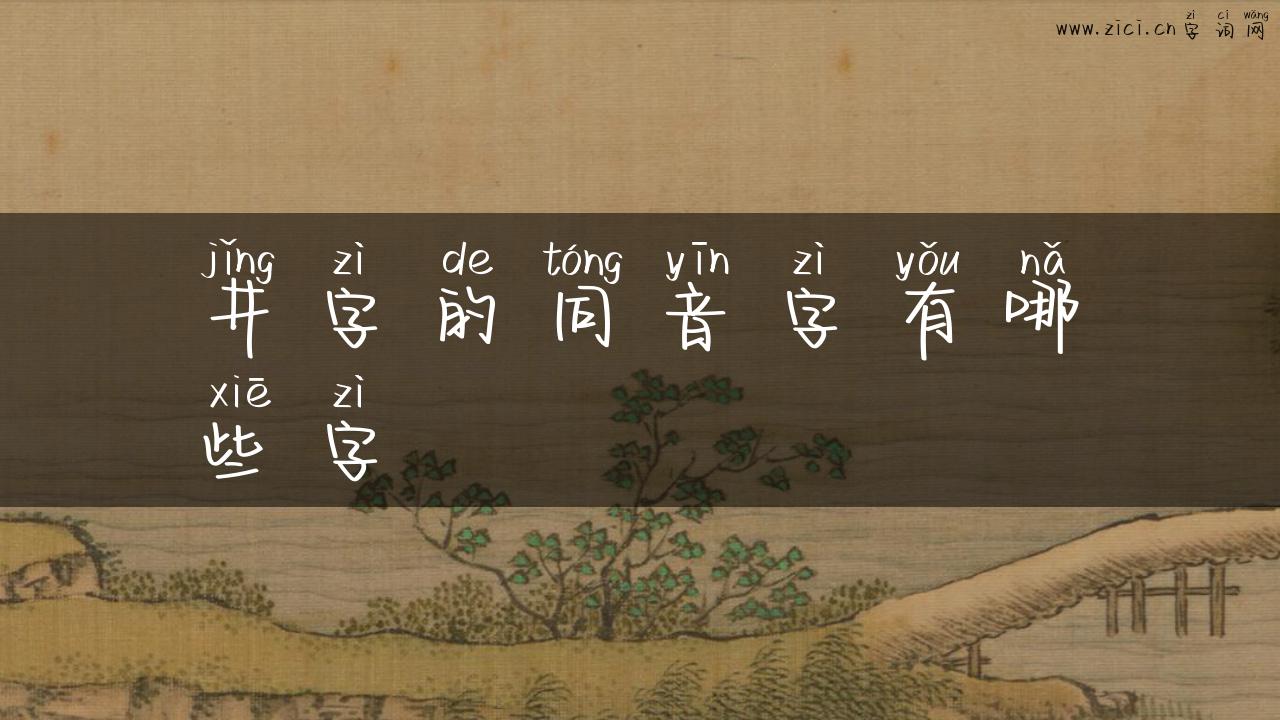 zì cí wǎng
www.zici.cn 字词网
jǐng zì de tóng yīn zì yǒu nǎ
井字的同音字有哪
xiē zì
些字